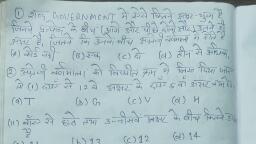 ① शब्द GOVERNMENT में ऐसे कितने अक्षर युग्म हैं
जिनके प्रत्येक के बीच (आगे और पीछे दोनों ओर) उतने ही
अक्षर हैं, जितने कि उनके बीच अंग्रेजी वर्णमाला में होते हैं
(a) कोई नहीं (b) एक (c) दो (d) तीन से अधिक
② अंग्रेजी वर्णमाला को विपरीत क्रम में लिखा दिया जाये
से (i) दाएं से 12 वें अक्षर के दाएं 6 वां अक्षर कौन
(a) T (b) G (c) V (d) H
(ii) बाएँ से छठे तथा उन्नीसवें अक्षर के बीच कितने
है
(b) 13 (c) 12 (d) 14